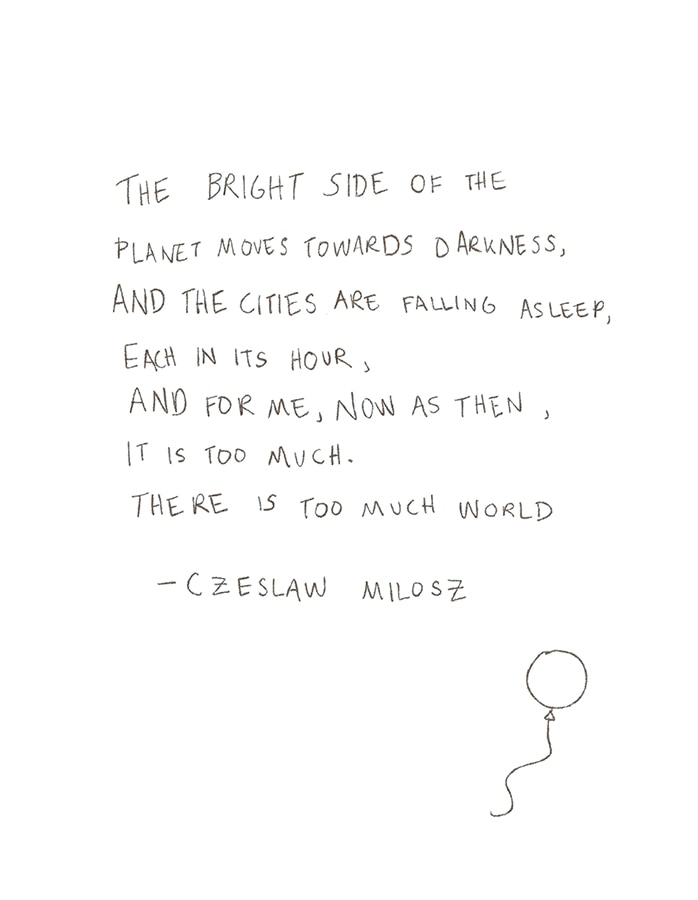 THE BRIGHT SIDE OF THE
PLANET MOVES TOWARDS DARKNESS,
AND THE CITIES ARE FALLING ASLEEP,
EACH IN ITS HOUR,
AND FOR ME, NOW AS THEN,
IT IS TOO MUCH.
THERE IS TOO MUCH WORLD
- CZESLAW MILOSZ